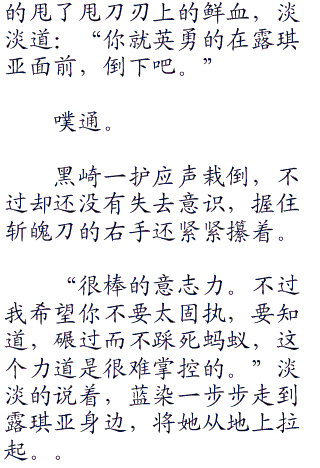 的甩了甩刀刃上的鲜血，淡
淡道：“你就英勇的在露琪
亚面前，倒下吧。”
噗通。
黑崎一护应声栽倒，不
过却还没有失去意识，握住
斩魄刀的右手还紧紧攥着。
“很棒的意志力。不过
我希望你不要太固执，要知
道，碾过而不踩死蚂蚁，这
个力道是很难掌控的。”淡
淡的说着，蓝染一步步走到
露琪亚身边，将她从地上拉
起。。